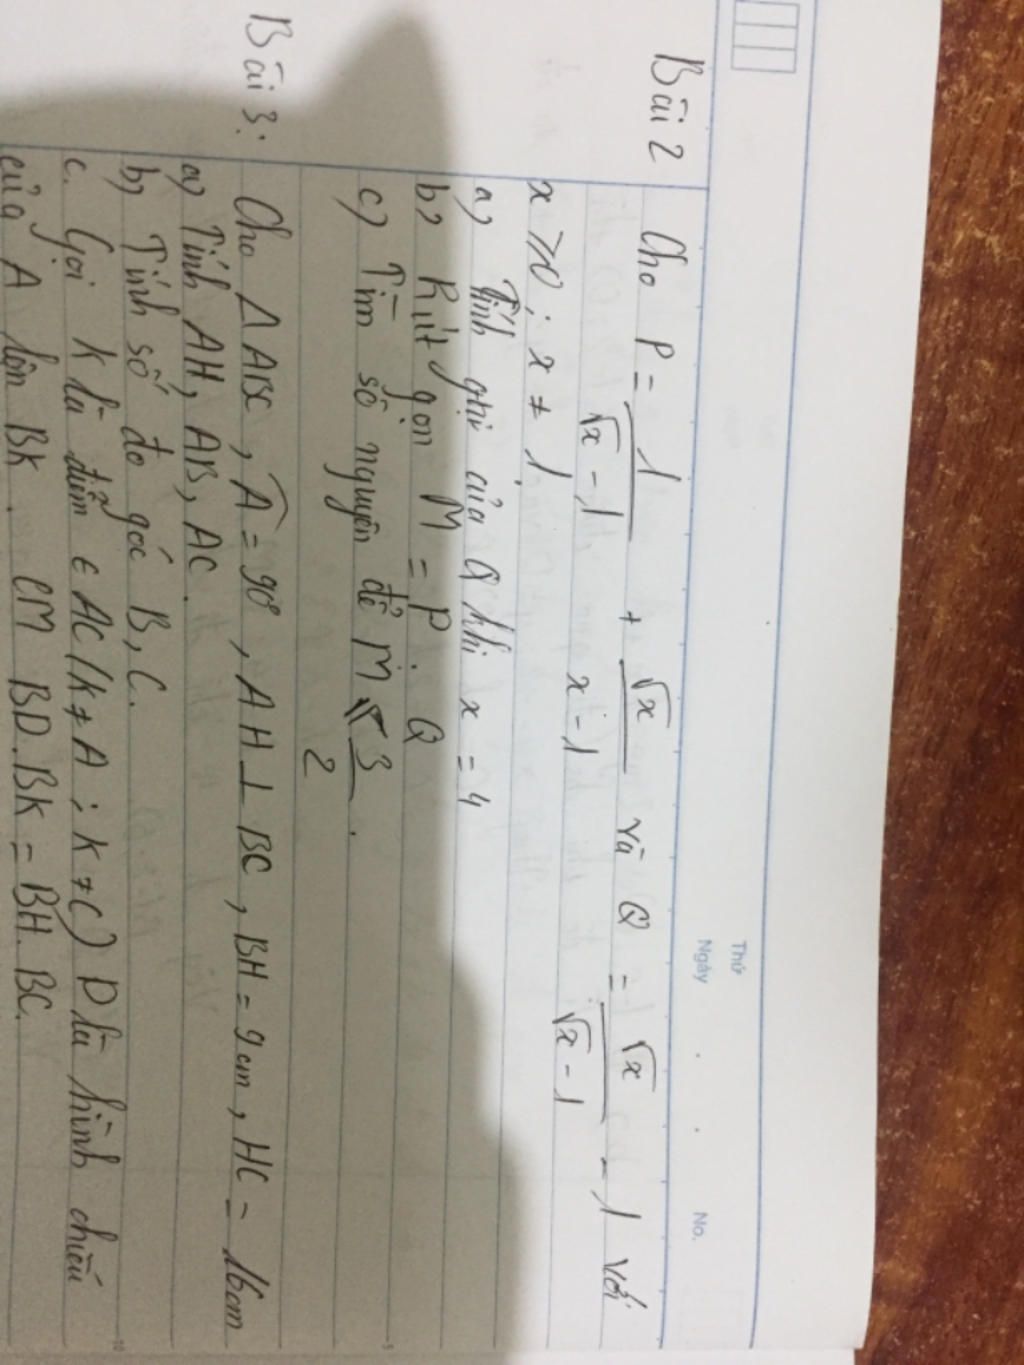 Thứ
Ngày . . No.
Bài 2 Cho P = 1/(√x - 1) + √x/(x - 1) và Q = √x/(√x - 1) - 1 với
x ⩾ 0 ; x ≠ 1.
a) Tính gtri của Q khi x = 4
b) Rút gọn M = P : Q
c) Tìm số nguyên để M ≤ 3/2.
Bài 3: Cho Δ ABC, Â = 90°, AH ⊥ BC, BH = 9cm, HC = 16cm
a) Tính AH, AB, AC.
b) Tính số đo góc B, C.
c. Gọi K là điểm ∈ AC (K ≠ A ; K ≠ C) D là hình chiếu
của A lên BK. CM BD.BK = BH.BC.
5
10